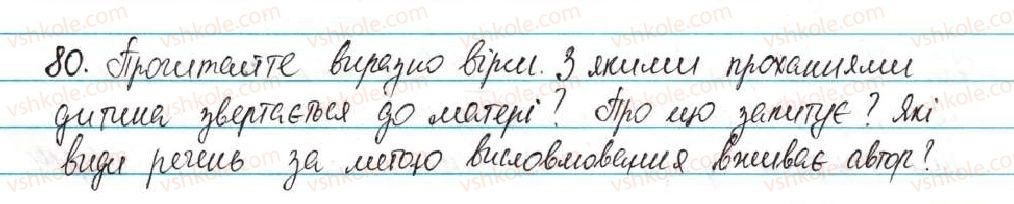 80. Прочитайте виразно вірш. З якими проханнями
дитина звертається до матері? Про що запитує? Які
види речень за метою висловлювання вживає автор?